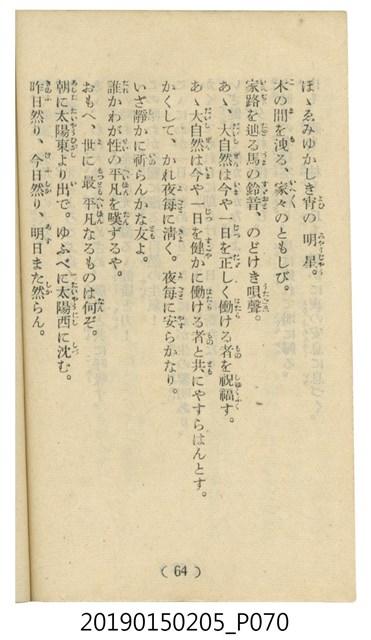 ほゝゑみゆかしき宵の明星。
木の間を洩る、家々のともしび。
家路を辿る馬の鈴音、のどけき唄聲。
あゝ、大自然は今や一日を正しく働ける者を祝福す。
あゝ大自然は今や一日を健かに働ける者と共にやすらはんとす。
かくして、かれ夜毎に清く。夜毎に安らかなり。
いざ靜かに祈らんかな友よ。
誰かわが性の平凡を嘆ずるや。
おもへ、世に最平凡なるものは何ぞ。
朝に太陽東より出で。ゆふべに太陽西に沈む。
昨日然り、今日然り、明日また然らん。
( 64 )
20190150205_P070